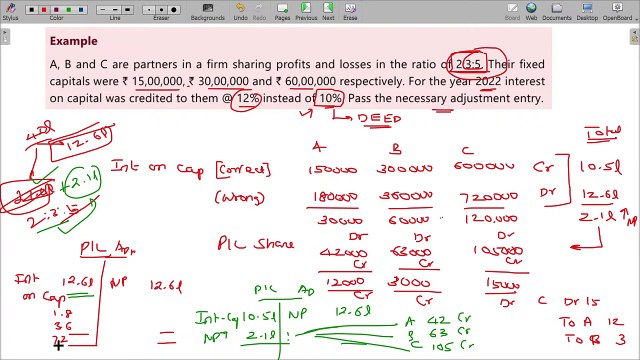 Background
Undo
Redo
Pen
Select
Page
Previous
Next
Erase
Delete
Example
A, B and C are partners in a firm sharing profits and losses in the ratio of 2:3:5. Their fixed
capitals were ₹ 15,00,000, ₹ 30,00,000 and ₹ 60,00,000 respectively. For the year 2022 interest
on capital was credited to them @ 12% instead of 10%. Pass the necessary adjustment entry.
DEED
12.6l
+2.1l
2:3:5
A B C Total
Int on Cap [Correct] 150000 300000 600000 Cr 10.5l
(Wrong) 180000 360000 720000 Dr 12.6l
30000 60000 120,000 2.1l ↑ NP
Dr Dr Dr
P|L Share 42000 63000 105000
Cr Cr Cr
12000 3000 15000
Cr Cr Dr
P|L
Int on Cap 12.6l NP 12.6l
1.8
3.6
7.2
P|L AD
Int-Cap 10.5l NP 12.6l
NPT 2.1l
A 42 Cr
B 63 Cr
C 105 Cr
C Dr 15
To A 12
To B 3